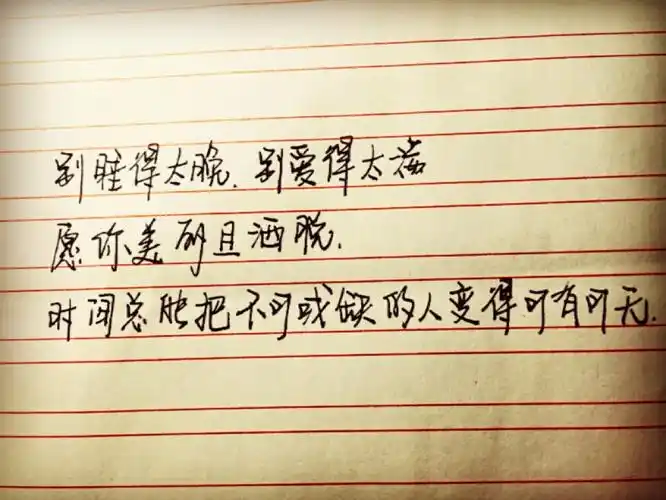 别睡得太晚.别爱得太满
愿你美丽且洒脱.
时间总能把不可或缺的人变得可有可无.